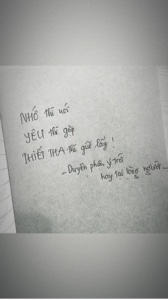 NHỚ thì nói
YÊU thì gặp
THIẾT THA thì giữ lấy!
- Duyên phận, ý trời
hay tại lòng người -